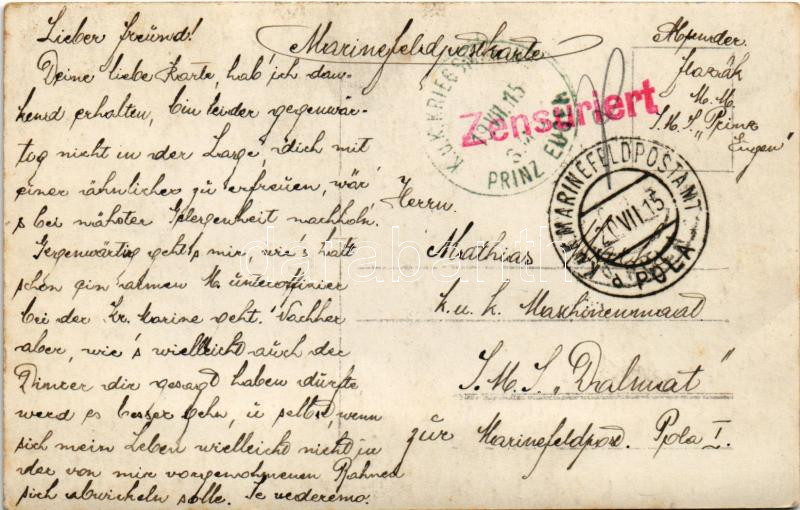 Lieber Freund!
Deine liebe Karte, hab' ich dan-
kend erhalten, bin leider gegenwär-
tog nicht in der Lage, dich mit
einer ähnlichen zu erfreuen, wär
s bei nähster Gelegenheit nachholn.
Gegenwärtig geht's mir wie's halt
schon ein' armen M. unteroffizier
bei der Kr. marine geht. Nachher
aber, wie's wielleicht auch der
dir gesagt haben dürfte
werd es besser gehn, u selbst, wenn
sich mein Leben wielleicht nicht in
der von mir vorgenohmenen Bahnen
sich abwickeln solle. Te vederemo.
Marinefeldpostkarte
K.u.K. KRIEGS
VII 15
PRINZ EUGEN
Zensuriert
Absender
M. M.
S.M.S. "Prinz
Eugen"
K.u.K. MARINEFELDPOSTAMT
20 VII. 15
POLA
Herrn
Mathias
k. u. k. Maschinenmaat
S. M. S. „Dalmat"
zur Marinefeldpost. Pola I.
darabanth